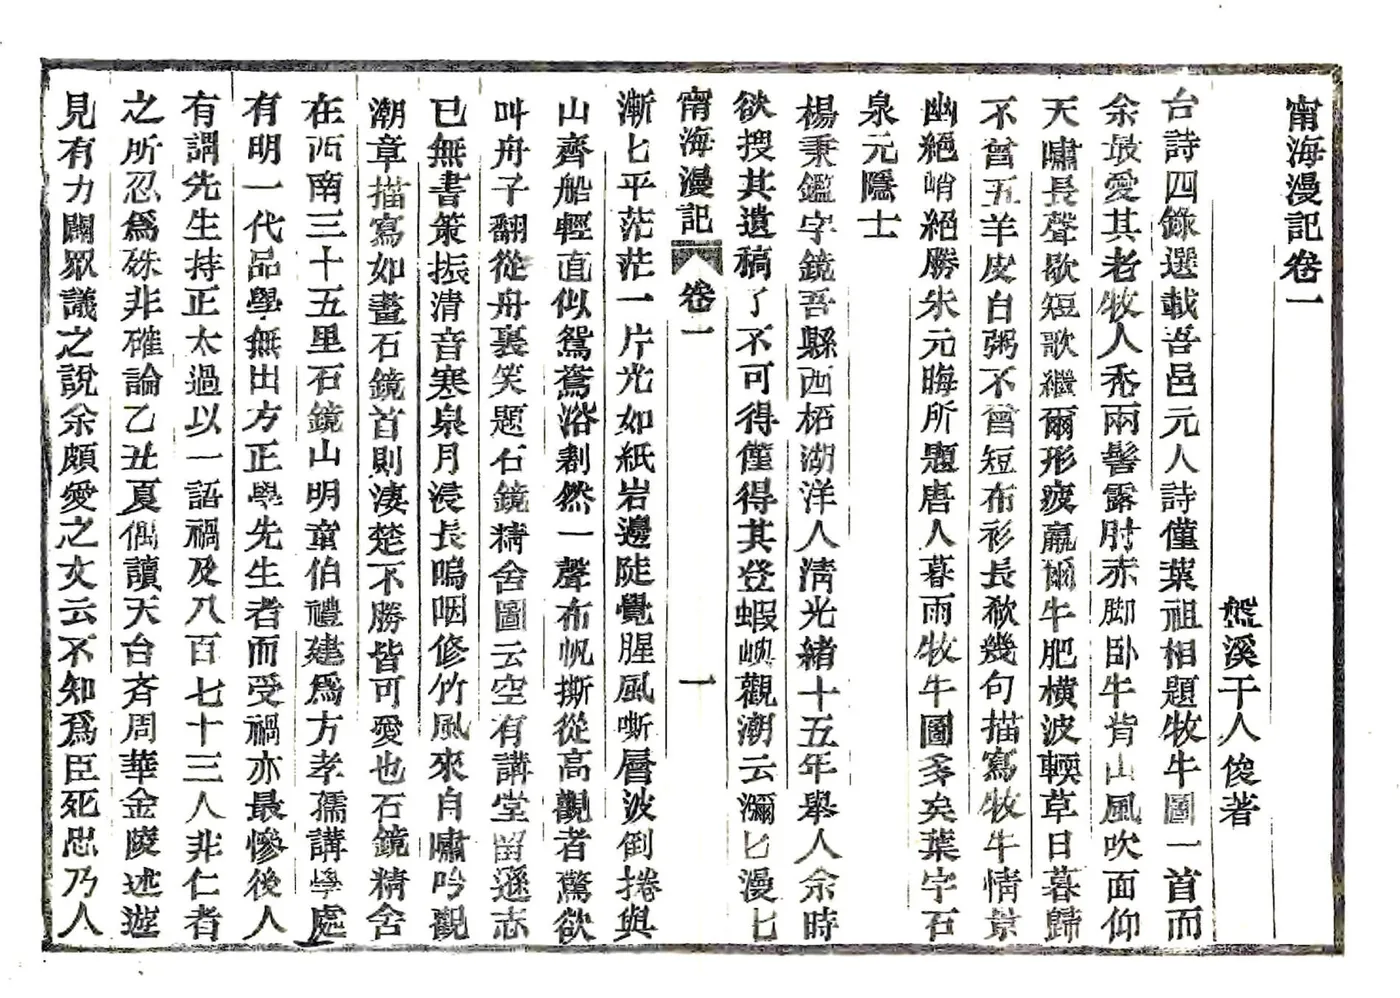 甯海漫記卷一
盤溪干人俊著
台詩四錄選載吾邑元人詩僅葉祖相題牧牛圖一首而
余最愛其老牧人禿兩髻露肘赤脚臥牛背山風吹面仰
天嘯長聲歇短歌繼爾形疲羸爾牛肥橫波輭草日暮歸
不曾五羊皮白粥不曾短布衫長欷幾句描寫牧牛情景
幽絕峭絕勝朱元晦所題唐人暮雨牧牛圖多矣葉字石
泉元隱士
楊秉鑑字鏡吾縣西柘湖洋人淸光緖十五年舉人余時
欲搜其遺稿了不可得僅得其登蝦㠘觀潮云瀰匕漫匕
甯海漫記 卷一 一
漸匕平茫茫一片光如紙岩邊陡覺腥風嘶層波倒捲與
山齊船輕直似鴛鴦浴劃然一聲布帆撕從高觀者驚欲
叫舟子翻從舟裏笑題石鏡精舍圖云空有講堂留遜志
已無書策振清音寒泉月浸長嗚咽修竹風來自嘯吟觀
潮章描寫如畫石鏡首則淒楚不勝皆可愛也石鏡精舍
在西南三十五里石鏡山明童伯禮建爲方孝孺講學處
有明一代品學無出方正學先生者而受禍亦最慘後人
有謂先生持正太過以一語禍及八百七十三人非仁者
之所忍爲殊非確論乙丑夏偶讀天台齐周華金陵述遊
見有力闢眾議之說余頗愛之文云不知爲臣死忠乃人